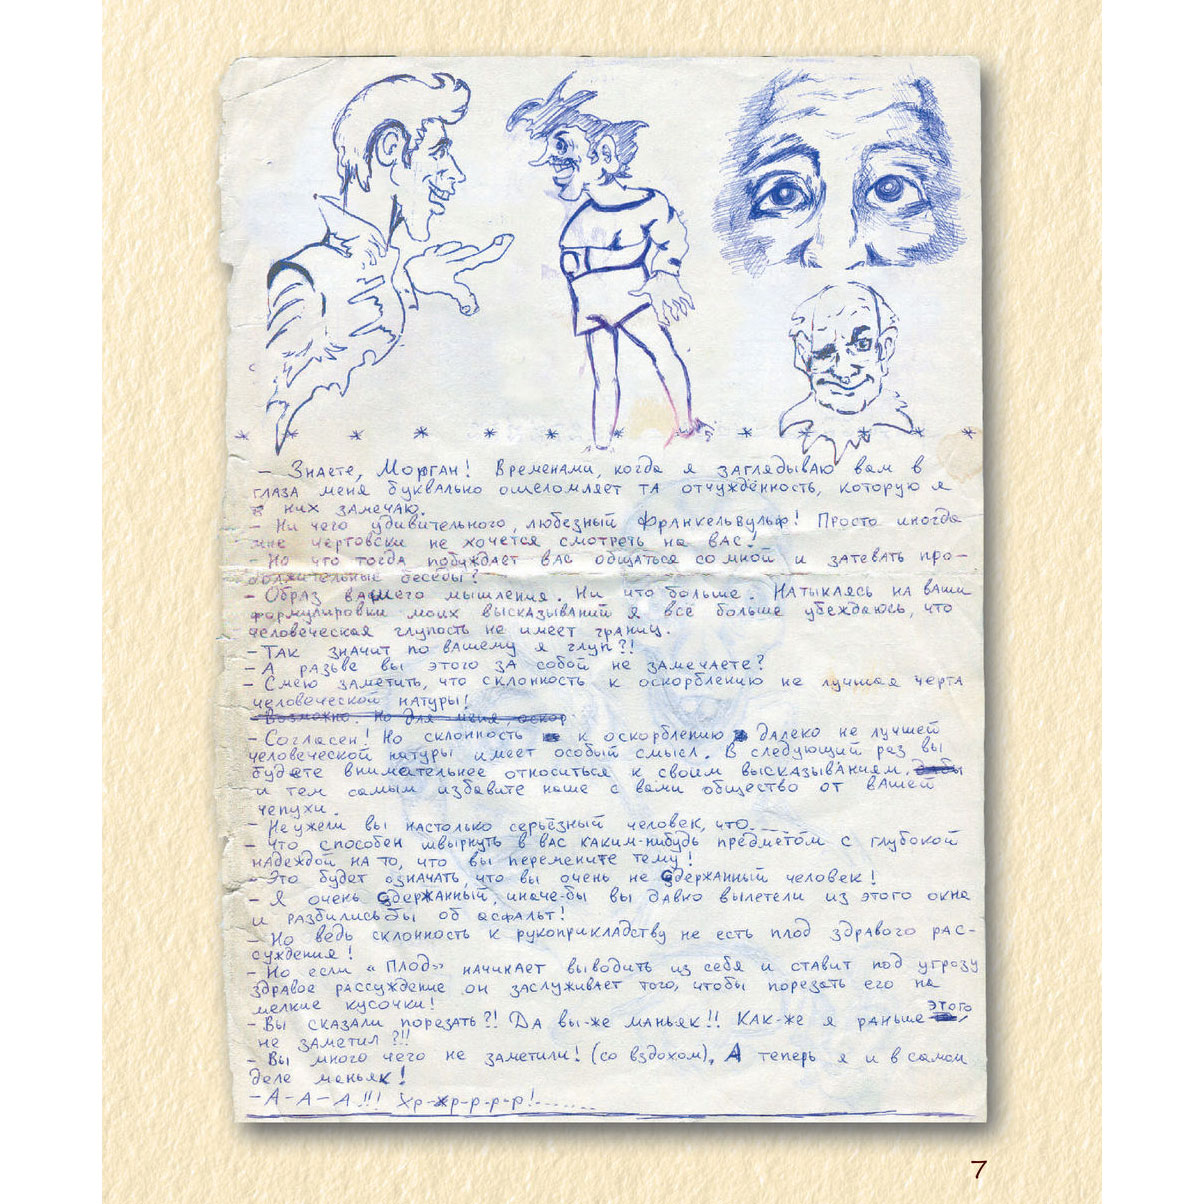 * * * * * * * * * * * *
– Знаете, Морган! Временами, когда я заглядываю вам в
глаза меня буквально ошеломляет та отчуждённость, которую я
в них замечаю.
– Ни чего удивительного, любезный Франкельвульф! Просто иногда
мне чертовски не хочется смотреть на вас!
– Но что тогда побуждает вас общаться со мной и затевать про-
должительные беседы?
– Образ вашего мышления. Ни что больше. Натыкаясь на ваши
формулировки моих высказываний я всё больше убеждаюсь, что
человеческая глупость не имеет границ.
– Так значит по вашему я глуп?!
– А разьве вы этого за собой не замечаете?
– Смею заметить, что склонность к оскорблению не лучшая черта
человеческой натуры!
– Возможно. Но для меня, оскор
– Согласен! Но склонность к оскорблению далеко не лучшей
человеческой натуры имеет особый смысл. В следующий раз вы
будете внимательнее относиться к своим высказываниям, дабы
и тем самым избавите наше с вами общество от вашей
чепухи.
– Неужели вы настолько серьёзный человек, что...
– что способен швырнуть в вас каким-нибудь предметом с глубокой
надеждой на то, что вы перемените тему!
– Это будет означать, что вы очень не сдержанный человек!
– Я очень сдержанный, иначе-бы вы давно вылетели из этого окна
и разбились бы об асфальт!
– Но ведь склонность к рукоприкладству не есть плод здравого рас-
суждения!
– Но если «Плод» начинает выводить из себя и ставит под угрозу
здравое рассуждение он заслуживает того, чтобы порезать его на
мелкие кусочки!
– Вы сказали порезать?! Да вы-же маньяк!! Как-же я раньше этого
не заметил?!!
– Вы много чего не заметили! (со вздохом), А теперь я и в самом
деле маньяк!
– А – А – А!!! Хр-хр-р-р-р!.......
7